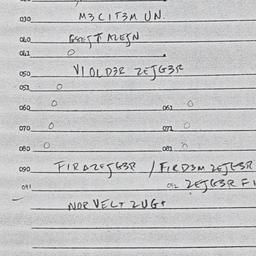 030 M3CIT3M UN.
040
041 O
050 VIOLD3R ZEJG3R
051 O
060 O 061 O
070 O 071 O
080 O 081
090 FIRDZEJG3R / FIRD3M ZEJG3R
091 092 ZEJG3R FI
NOR VELT ZUG+